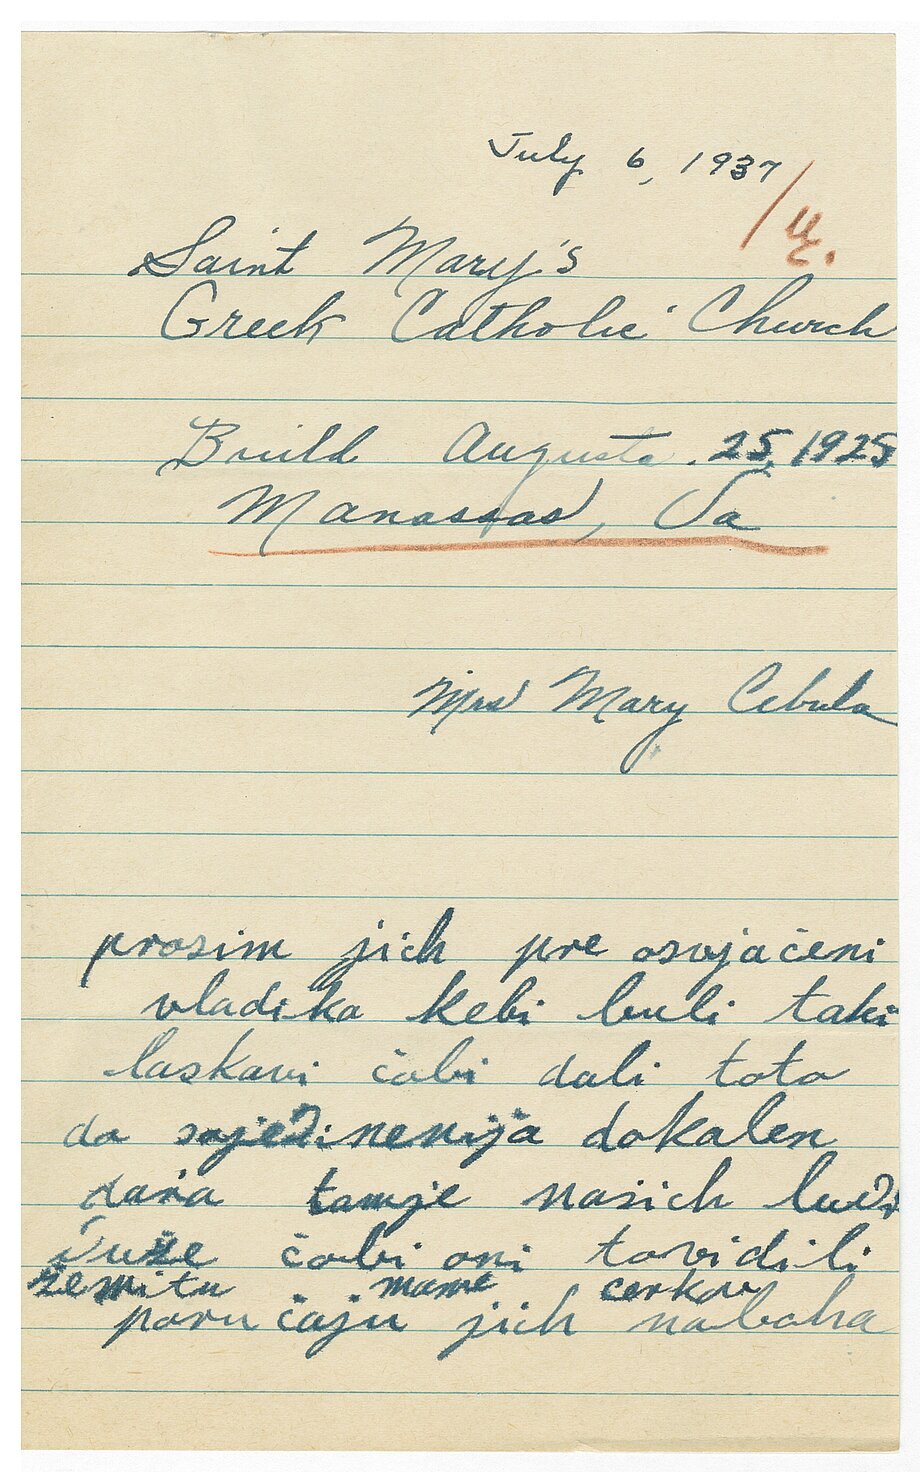 July 6, 1937
Saint Mary's
Greek Catholic Church
Build Augusta. 25, 1925
Manassas, Va
Mrs Mary Cebula
prosim jich pre osvjačeni
vladika kebi buli taki
laskavi čobi dali toto
do sojedinenija dokalen
dara tamje nasich ludi
duže čobi oni tovidili
žemitu mame cerkov
poručaju jich naboha